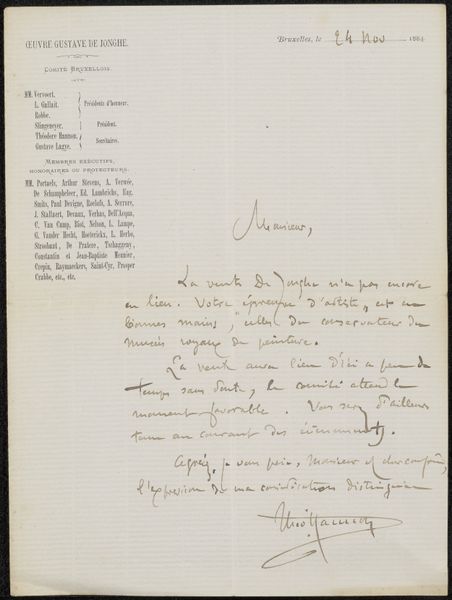 ŒUVRE GUSTAVE DE JONGHE.
COMITÉ BRUXELLOIS
MM. Vervoort.
L. Gallait.
Robbe.
Présidents d'honneur.
Slingeneyer.
Président.
Théodore Hannon.
Gustave Lagye.
Secrétaires.
MEMBRES EXÉCUTIFS,
HONORAIRES OU PROTECTEURS.
MM. Portaels, Arthur Stevens, A. Verwée,
De Schampheleer, Ed. Lambrichs, Eug.
Smits, Paul Devigne, Roelofs, A. Serrure,
J. Stallaert, Devaux, Verhas, Dell'Acqua,
C. Van Camp, Biot, Nelson, L. Lampe,
G. Vander Hecht, Hoeterickx, L. Herbo,
Stroobant, De Pratere, Tschaggeny,
Constantin et Jean-Baptiste Meunier,
Crepin, Raymaeckers, Saint-Cyr, Prosper
Crabbe, etc., etc.
Bruxelles, le 24 Nov 1884
Monsieur,
La vente De Jonghe n'a pas encore
eu lieu. Votre épreuve d'artiste, est en
bonnes mains, celles du conservateur du
musées royaux de peinture.
La vente aura lieu d'ici à peu de
temps sans doute, le comité attend le
moment favorable. Vous serez d'ailleurs
tenu au courant des événements.
Agréez, je vous prie, Monsieur et cher confrère,
l'expression de ma considération distinguée
Théo Hannon